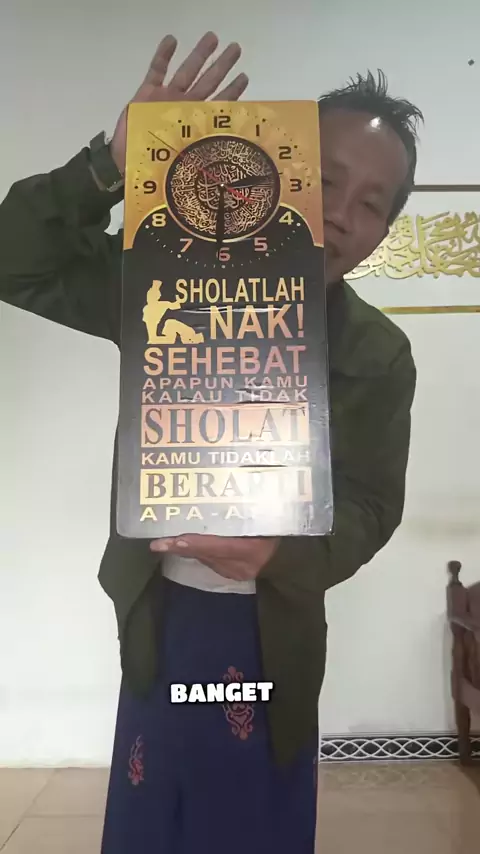 12
11 1
10 2
9 3
8 4
7 5
6
SHOLATLAH
NAK!
SEHEBAT
APAPUN KAMU
KALAU TIDAK
SHOLAT
KAMU TIDAKLAH
BERARTI
BANGET